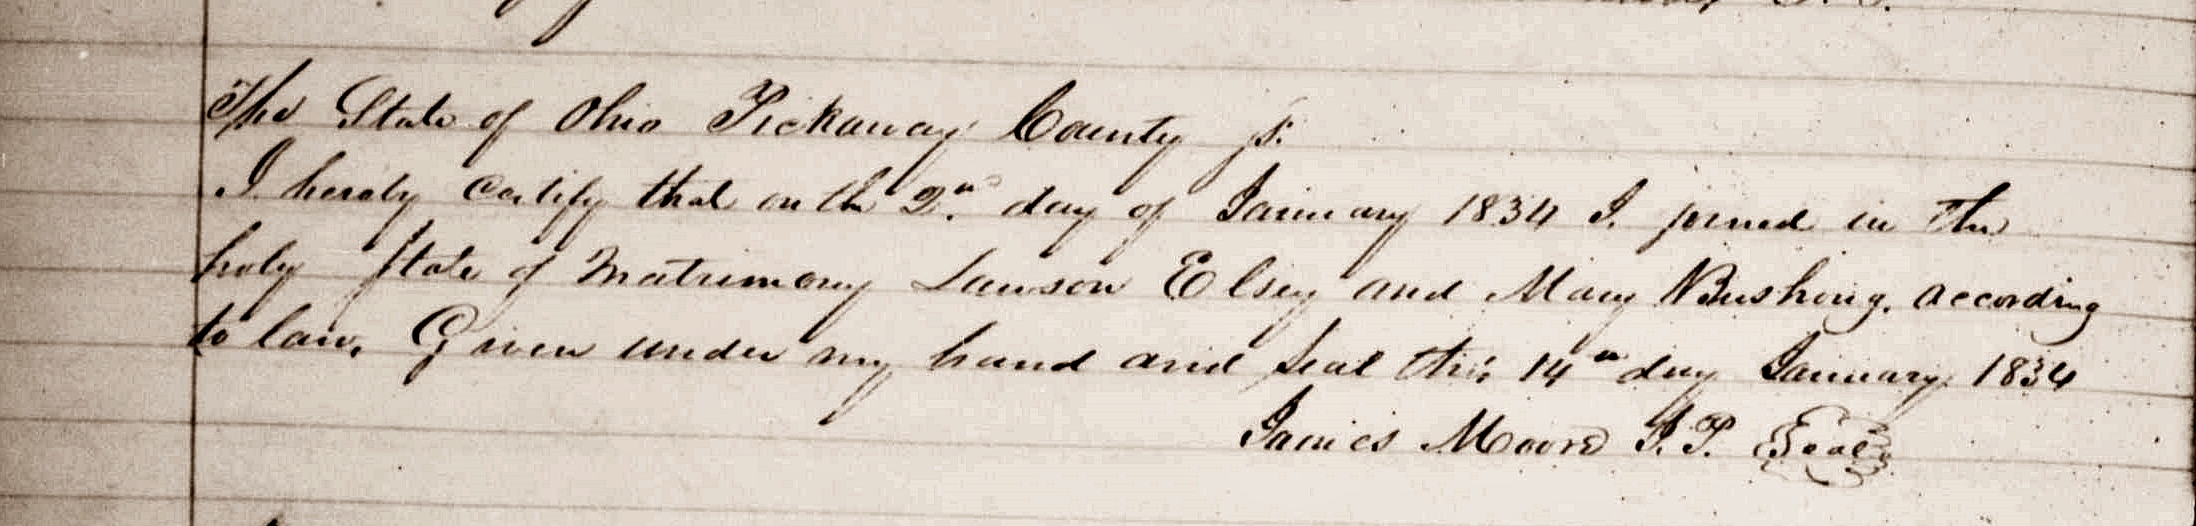 The State of Ohio Pickaway County ss.
I hereby Certify that on the 2nd. day of January 1834 I. joined in the
holy state of Matrimony Lawson Elsey and Mary Bushong. according
to law. Given under my hand and seal this 14th day January 1834
James Moore J. P. Seal